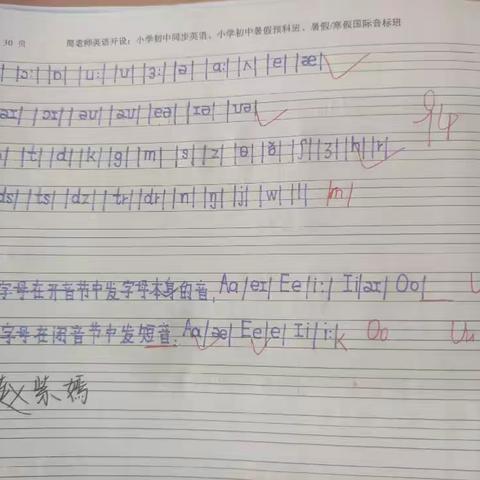 30 页 周老师英语开设：小学初中同步英语、小学初中暑假预科班、暑假/寒假国际音标班
| |ɔ:| |ɒ| |u:| |ʊ| |ɜ:| |ə| |ɑ:| |ʌ| |e| |æ|
|aɪ| |ɔɪ| |əʊ| |aʊ| |eə| |ɪə| |ʊə|
| |t| |d| |k| |g| |m| |s| |z| |θ| |ð| |ʃ| |ʒ| |h| |r|
|ds| |ts| |dz| |tr| |dr| |n| |ŋ| |j| |w| |l| |m|
字母在开音节中发字母本身的音. Aa|eɪ| Ee|i:| Ii|aɪ| Oo| U
字母在闭音节中发短音. Aa|æ| Ee|e| Ii|i:| Oo Uu
赵紫嫣